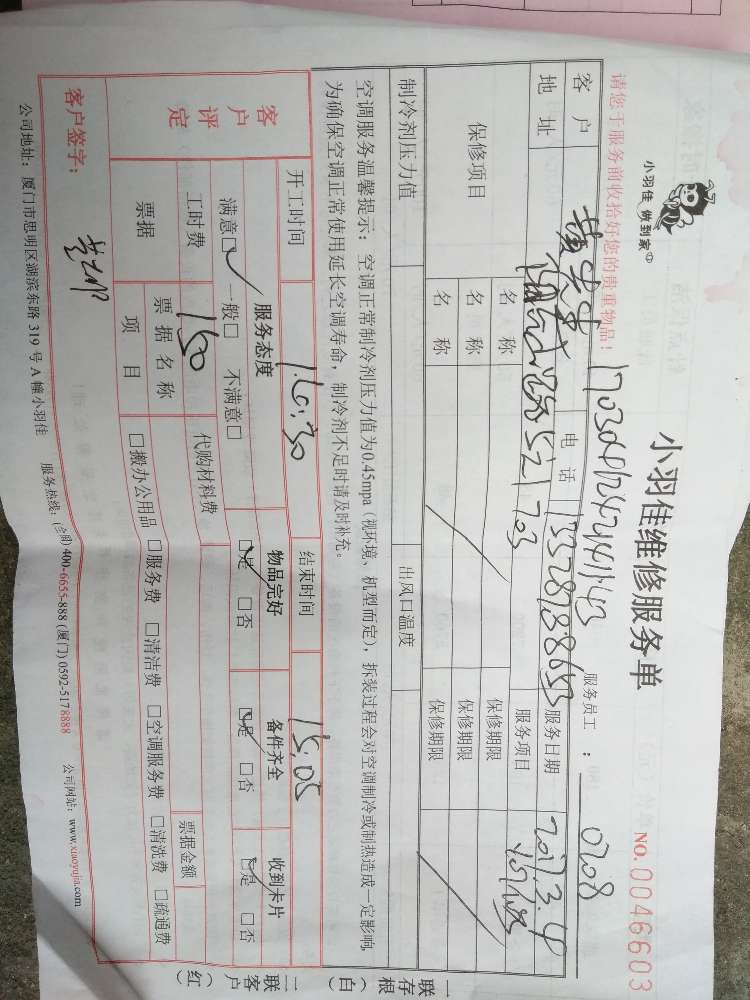 小羽佳 做到家
小羽佳维修服务单
NO.0046603
请您于服务前收拾好您的贵重物品！
服务员工： 0708
客户 电话 服务日期 2017.3.4
地址 521 703 服务项目
保修项目 名称 保修期限
名称 保修期限
名称 保修期限
制冷剂压力值 出风口温度
空调服务温馨提示：空调正常制冷剂压力值为0.45mpa（视环境、机型而定），拆装过程会对空调制冷或制热造成一定影响，
为确保空调正常使用延长空调寿命，制冷剂不足时请及时补充。
开工时间 结束时间 15:05
客户评定 服务态度 物品完好 备件齐全 收到卡片
满意□ 一般□ 不满意□ □是 □否 □是 □否 □是 □否
工时费 160 代购材料费
票据 票据名称 票据金额
项目 □搬办公用品 □服务费 □清洁费 □空调服务费 □清洗费 □疏通费
客户签字：
公司地址：厦门市思明区湖滨东路 319 号 A 幢小羽佳 服务热线：(全国) 400-6655-888 (厦门) 0592-5178888 公司网址：www.xiaoyujia.com
一联存根（白）
二联客户（红）